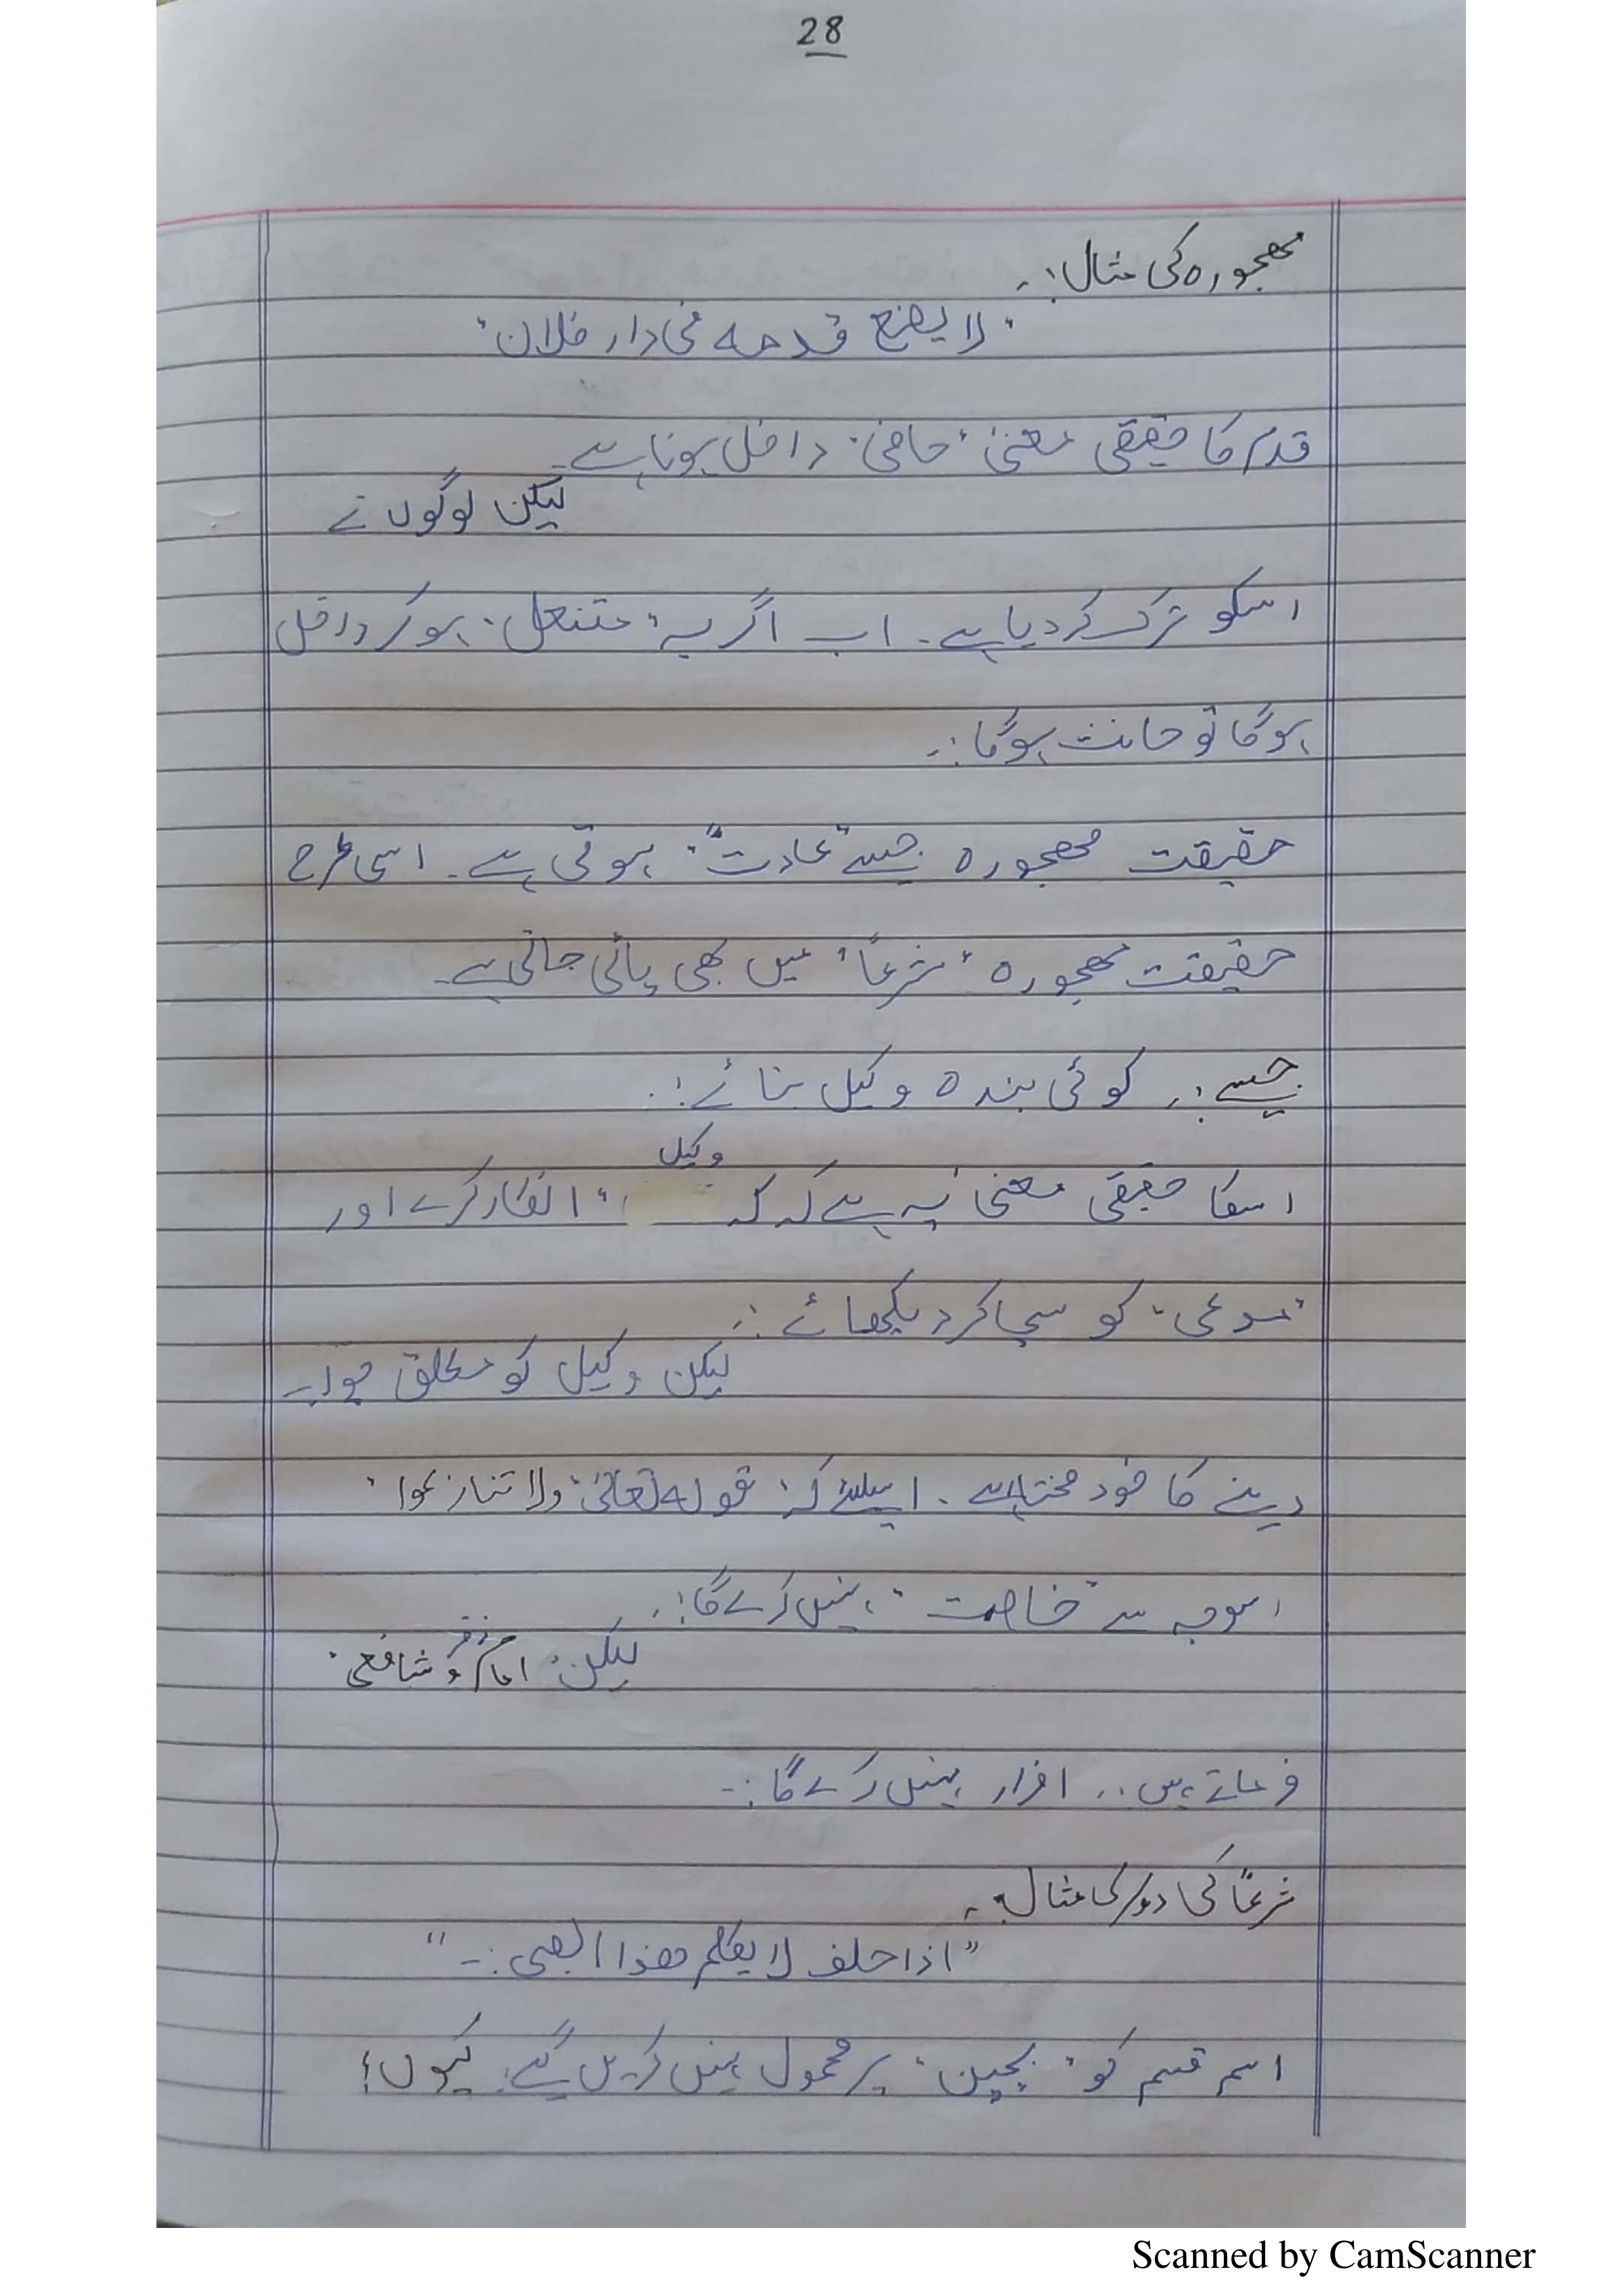 28
مھجورہ کی مثال:۔
"لا یضع قدمہ فی دار فلان"
قدم کا حقیقی معنیٰ "حافی" داخل ہونا ہے۔
لیکن لوگوں نے
اسکو ترک کر دیا ہے۔ اب اگر یہ "متنعل" ہو کر داخل
ہوگا تو حانث ہوگا:۔
حقیقت مھجورہ جیسے "عادت" ہوتی ہے۔ اسی طرح
حقیقت مھجورہ "شرعاً" میں بھی پائی جاتی ہے۔
جیسے:۔ کوئی بندہ وکیل بنائے:۔
وکیل
اسکا حقیقی معنی یہ ہے کہ کہ "انکار کرے اور
"مدعی" کو سچا کر دیکھائے:۔
لیکن وکیل کو مطلق جواب
دینے کا خود مختا ہے۔ اسلئے کہ: قولہ تعالیٰ "ولا تنازعوا"
اسوجہ سے "خاصمت" نہیں کرے گا:۔
زفر
لیکن: امام و شافعی"
فرماتے ہیں:۔ اقرار نہیں کرے گا:۔
شرعاً کی دوسری مثال:۔
"اذا حلف لا یکلم ھذا الصبی:۔"
اسم قسم کو "بچپن" پر محمول نہیں کریں گے: کیوں؟
Scanned by CamScanner